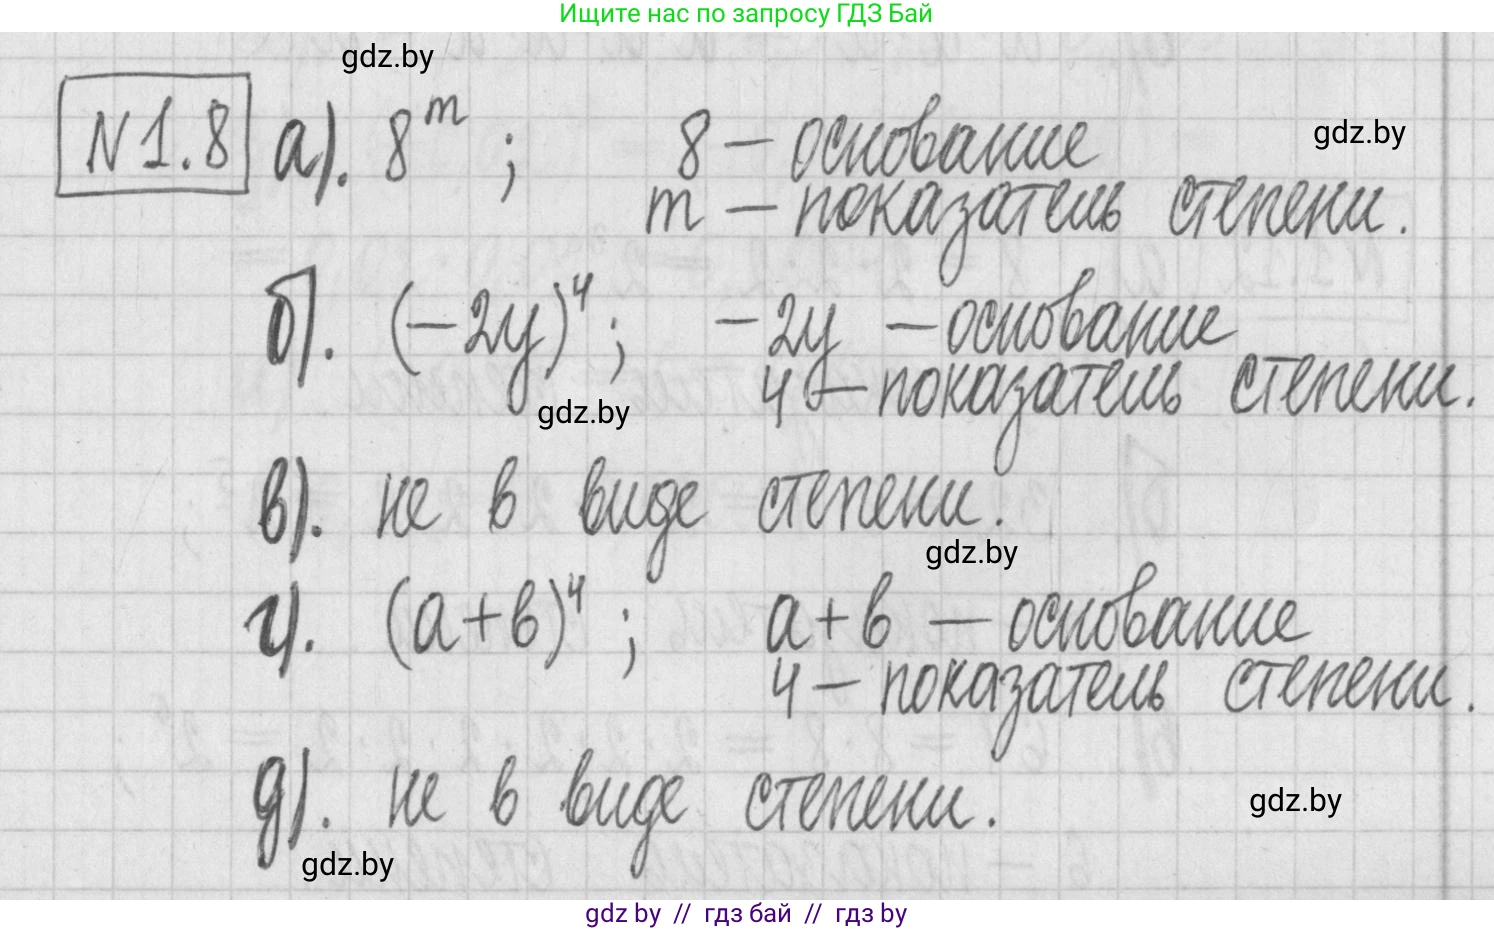 Ищите нас по запросу ГДЗ Бай
gdz.by
N1.8 а). 8^m ; 8 – основание
gdz.by
m – показатель степени.
б). (–2y)^4 ; –2y – основание
4 – показатель степени.
gdz.by
в). не в виде степени.
gdz.by
г). (a+b)^4 ; a+b – основание
4 – показатель степени.
д). не в виде степени.
gdz.by
gdz.by
gdz by // гдз бай // гдз by